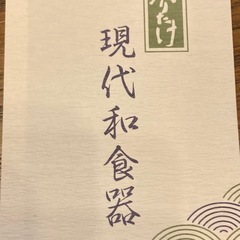 現代和食器
たけ